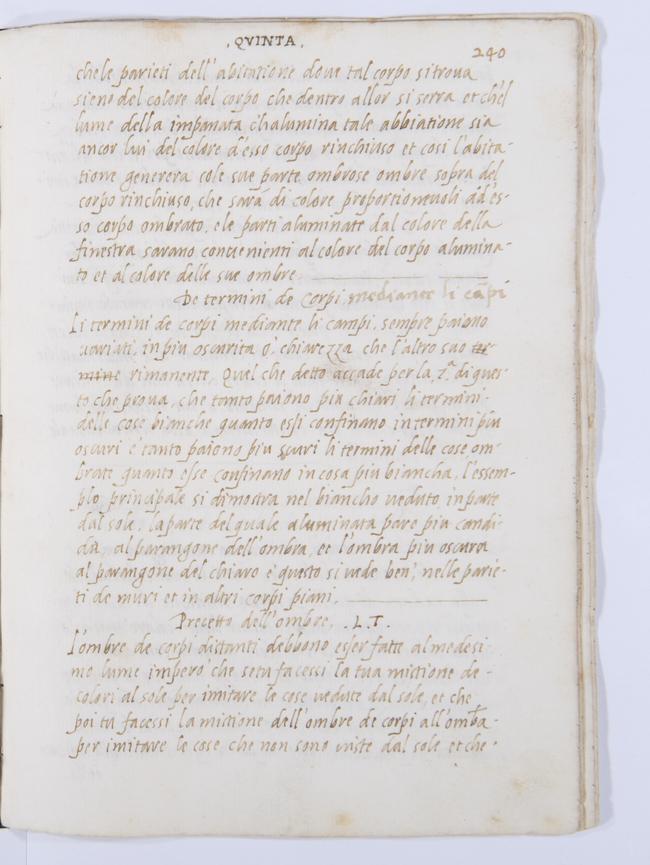 .QVINTA.
240
che le parieti dell'abitatione doue tal corpo si troua
sieno del colore del corpo che dentro allor si serra et ch'el
lume della impanata ch'alumina tale abbiatione sia
ancor lui del colore d'esso corpo rinchiuso et cosi l'abita-
tione generera cole sue parte ombrose ombre sopra del
corpo rinchiuso, che sarà di colore proportioneuoli dà és-
so corpo ombrato, e le parti aluminate dal colore della
finestra sarano conuenienti al colore del corpo alumina-
to et al colore delle sue ombre.
De termini de corpi mediante li cāpi
Li termini de corpi mediante li campi, sempre paiono
uariati, in piu oscurita ó chiarezza che l'altro suo ter-
mine rimanente, Quel che detto accade per la, 2ª. di ques-
to che proua, che tanto paiono piu chiari li termini-
delle cose bianche quanto essi confinano in termini piu
oscuri e tanto paiono piu scuri li termini delle cose om-
brate quanto esse confinano in cosa piu biancha, l'essem-
plo principale si dimostra nel biancho ueduto in parte
dal sole, la parte del quale aluminata pare piu candi-
da, al parangone dell'ombra, et l'ombra piu oscura
al parangone del chiaro e questo si uede ben', nelle parie-
ti de muri et in altri corpi piani.
Precetto dell'ombre. .L.T.
L'ombre de corpi distanti debbono esser fatte al medesi
mo lume impero' che se tu facessi la tua mictione de-
colori al sole per imitare le cose uedute dal sole, et che
poi tu facessi la mictione dell'ombre de corpi all'omba-
per imitare le cose che non sono uiste dal sole et che.